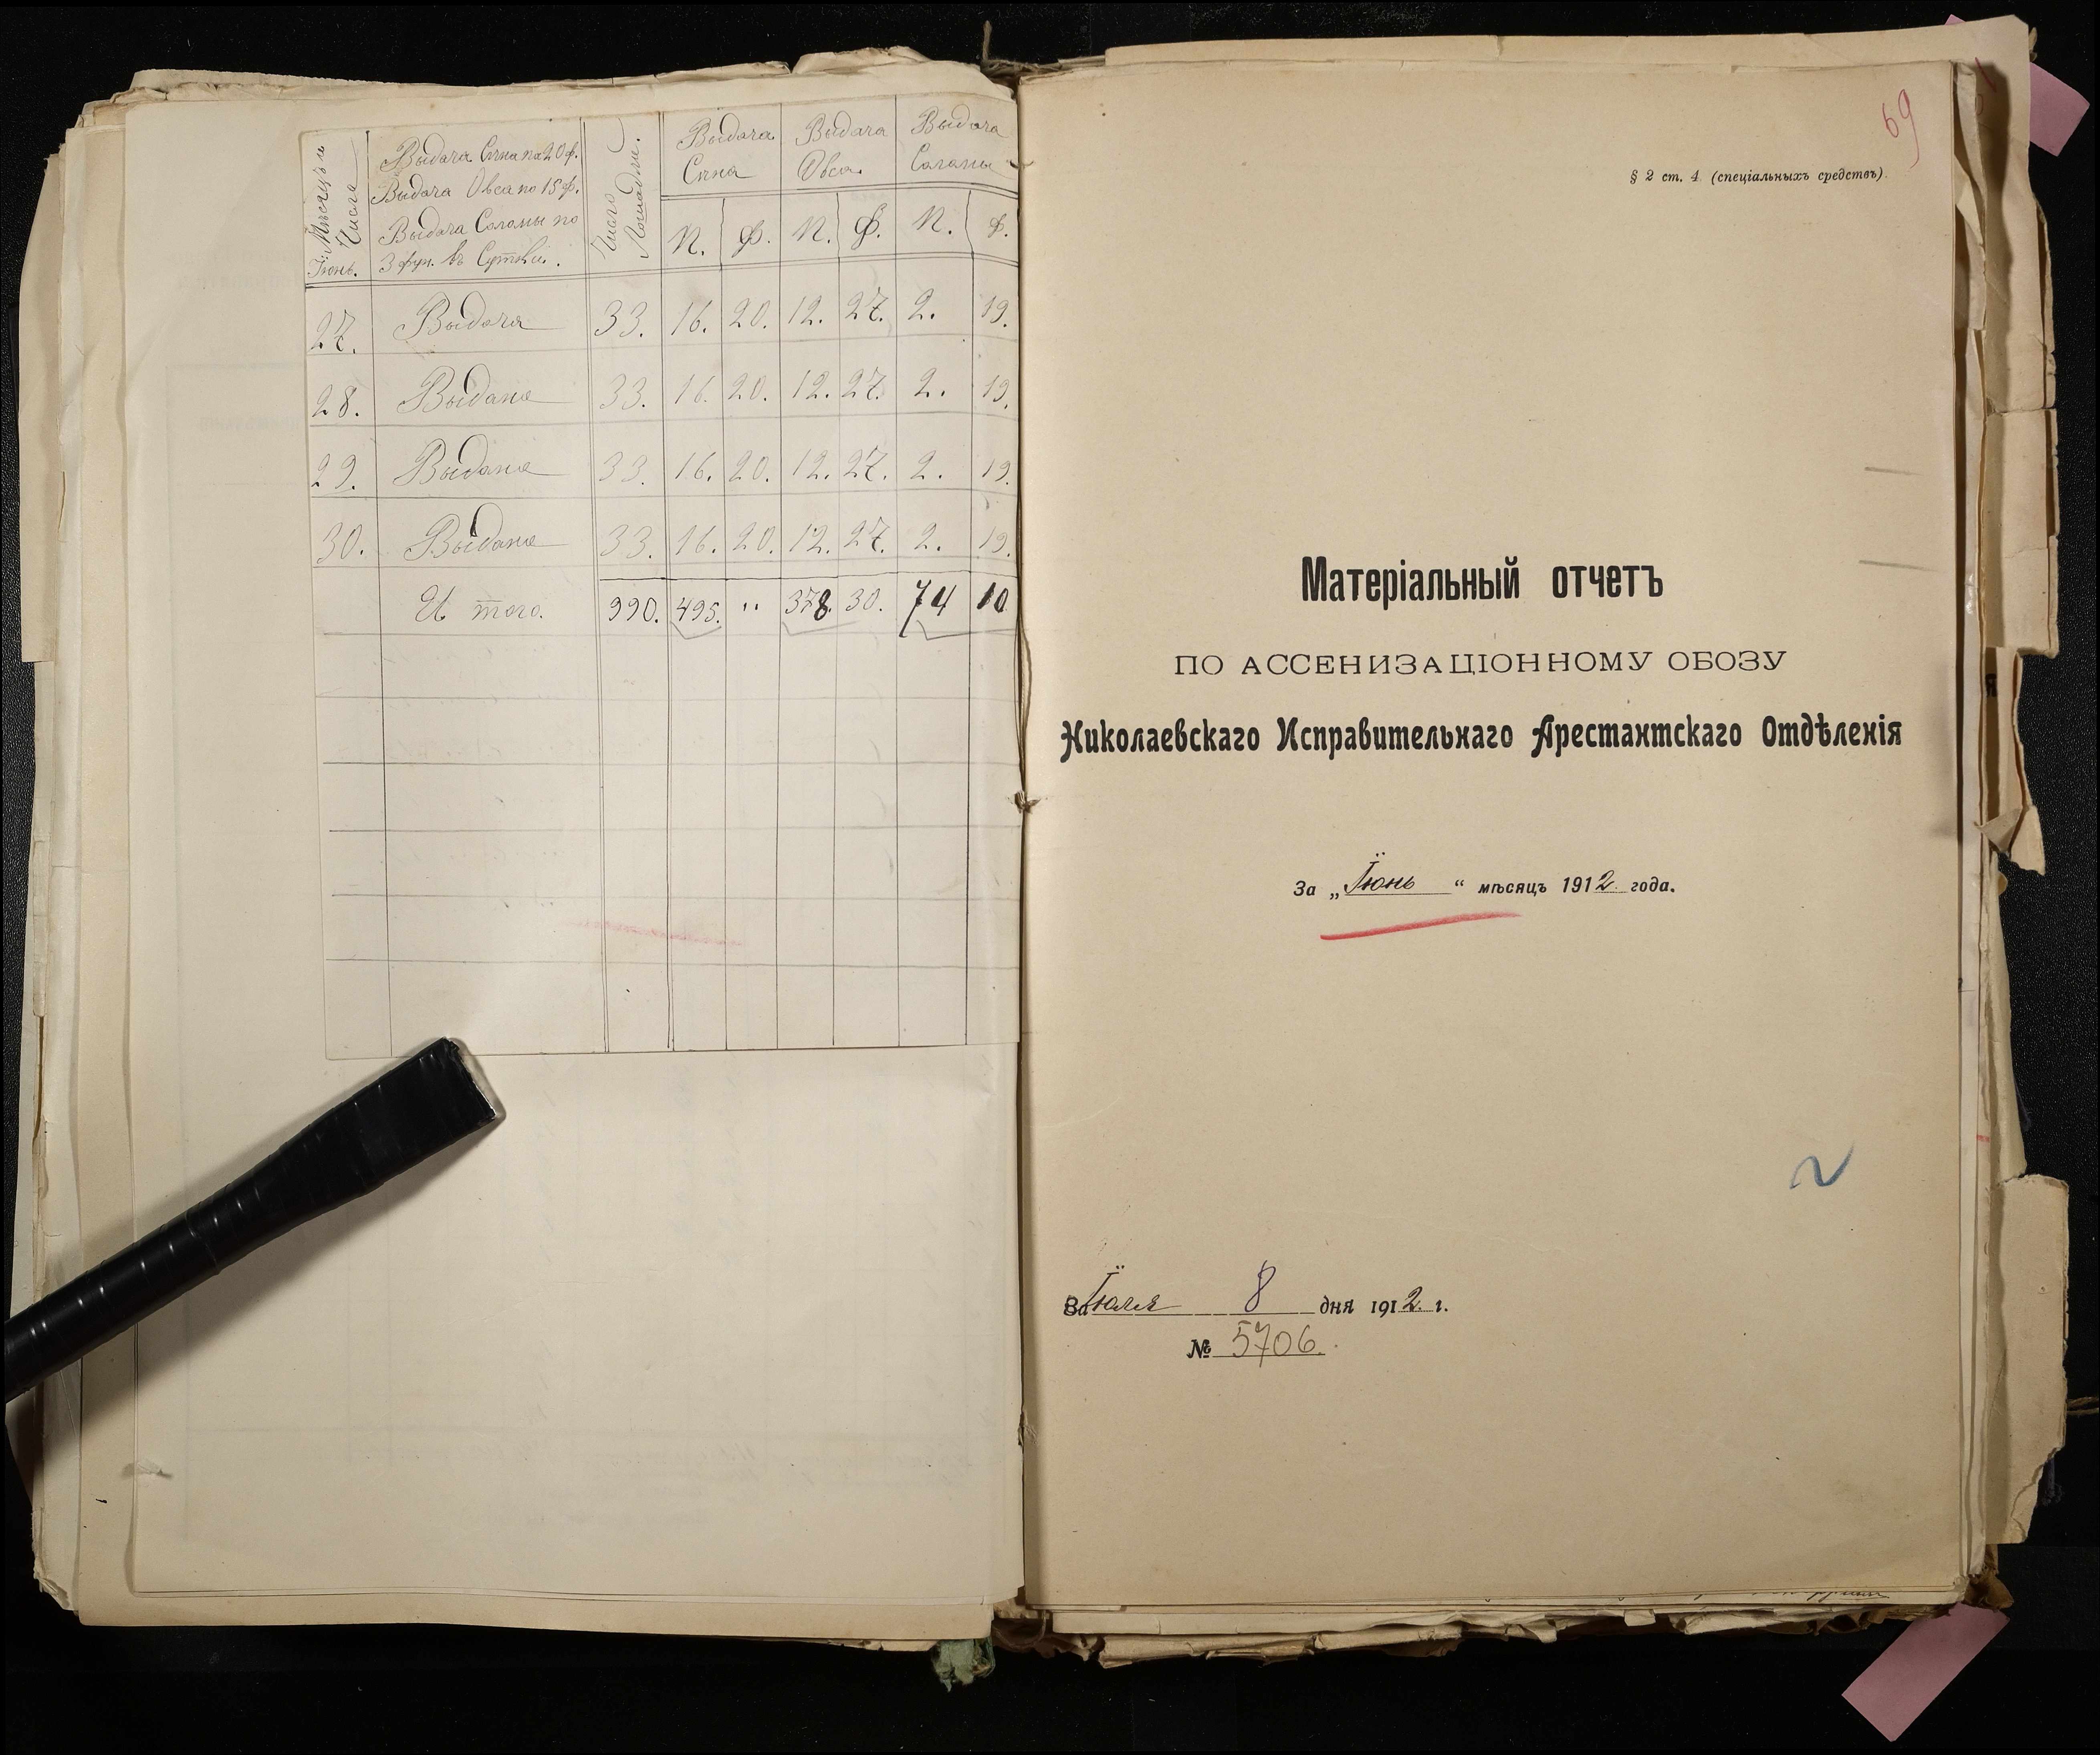 Мѣсяцъ и
Числа
Іюнь.
Выдача Сѣна по 20 ф.
Выдача Овса по 15 ф.
Выдача Соломы по
3 фун. въ Сутки.
Число
Лошадей.
Выдача
Сѣна
Выдача
Овса
Выдача
Соломы
П. Ф. П. Ф. П. Ф.
27. Выдача 33. 16. 20. 12. 27. 2. 19.
28. Выдана 33. 16. 20. 12. 27. 2. 19.
29. Выдана 33. 16. 20. 12. 27. 2. 19.
30. Выдана 33. 16. 20. 12. 27. 2. 19.
И того. 990. 495. " 378. 30. 74 10
69
§ 2 ст. 4 (спеціальныхъ средствъ).
Матеріальный отчетъ
ПО АССЕНИЗАЦІОННОМУ ОБОЗУ
Николаевскаго Исправительнаго Арестантскаго Отдѣленія
За „Іюнь“ мѣсяцъ 1912 года.
Іюля 8 дня 1912 г.
№ 5706.